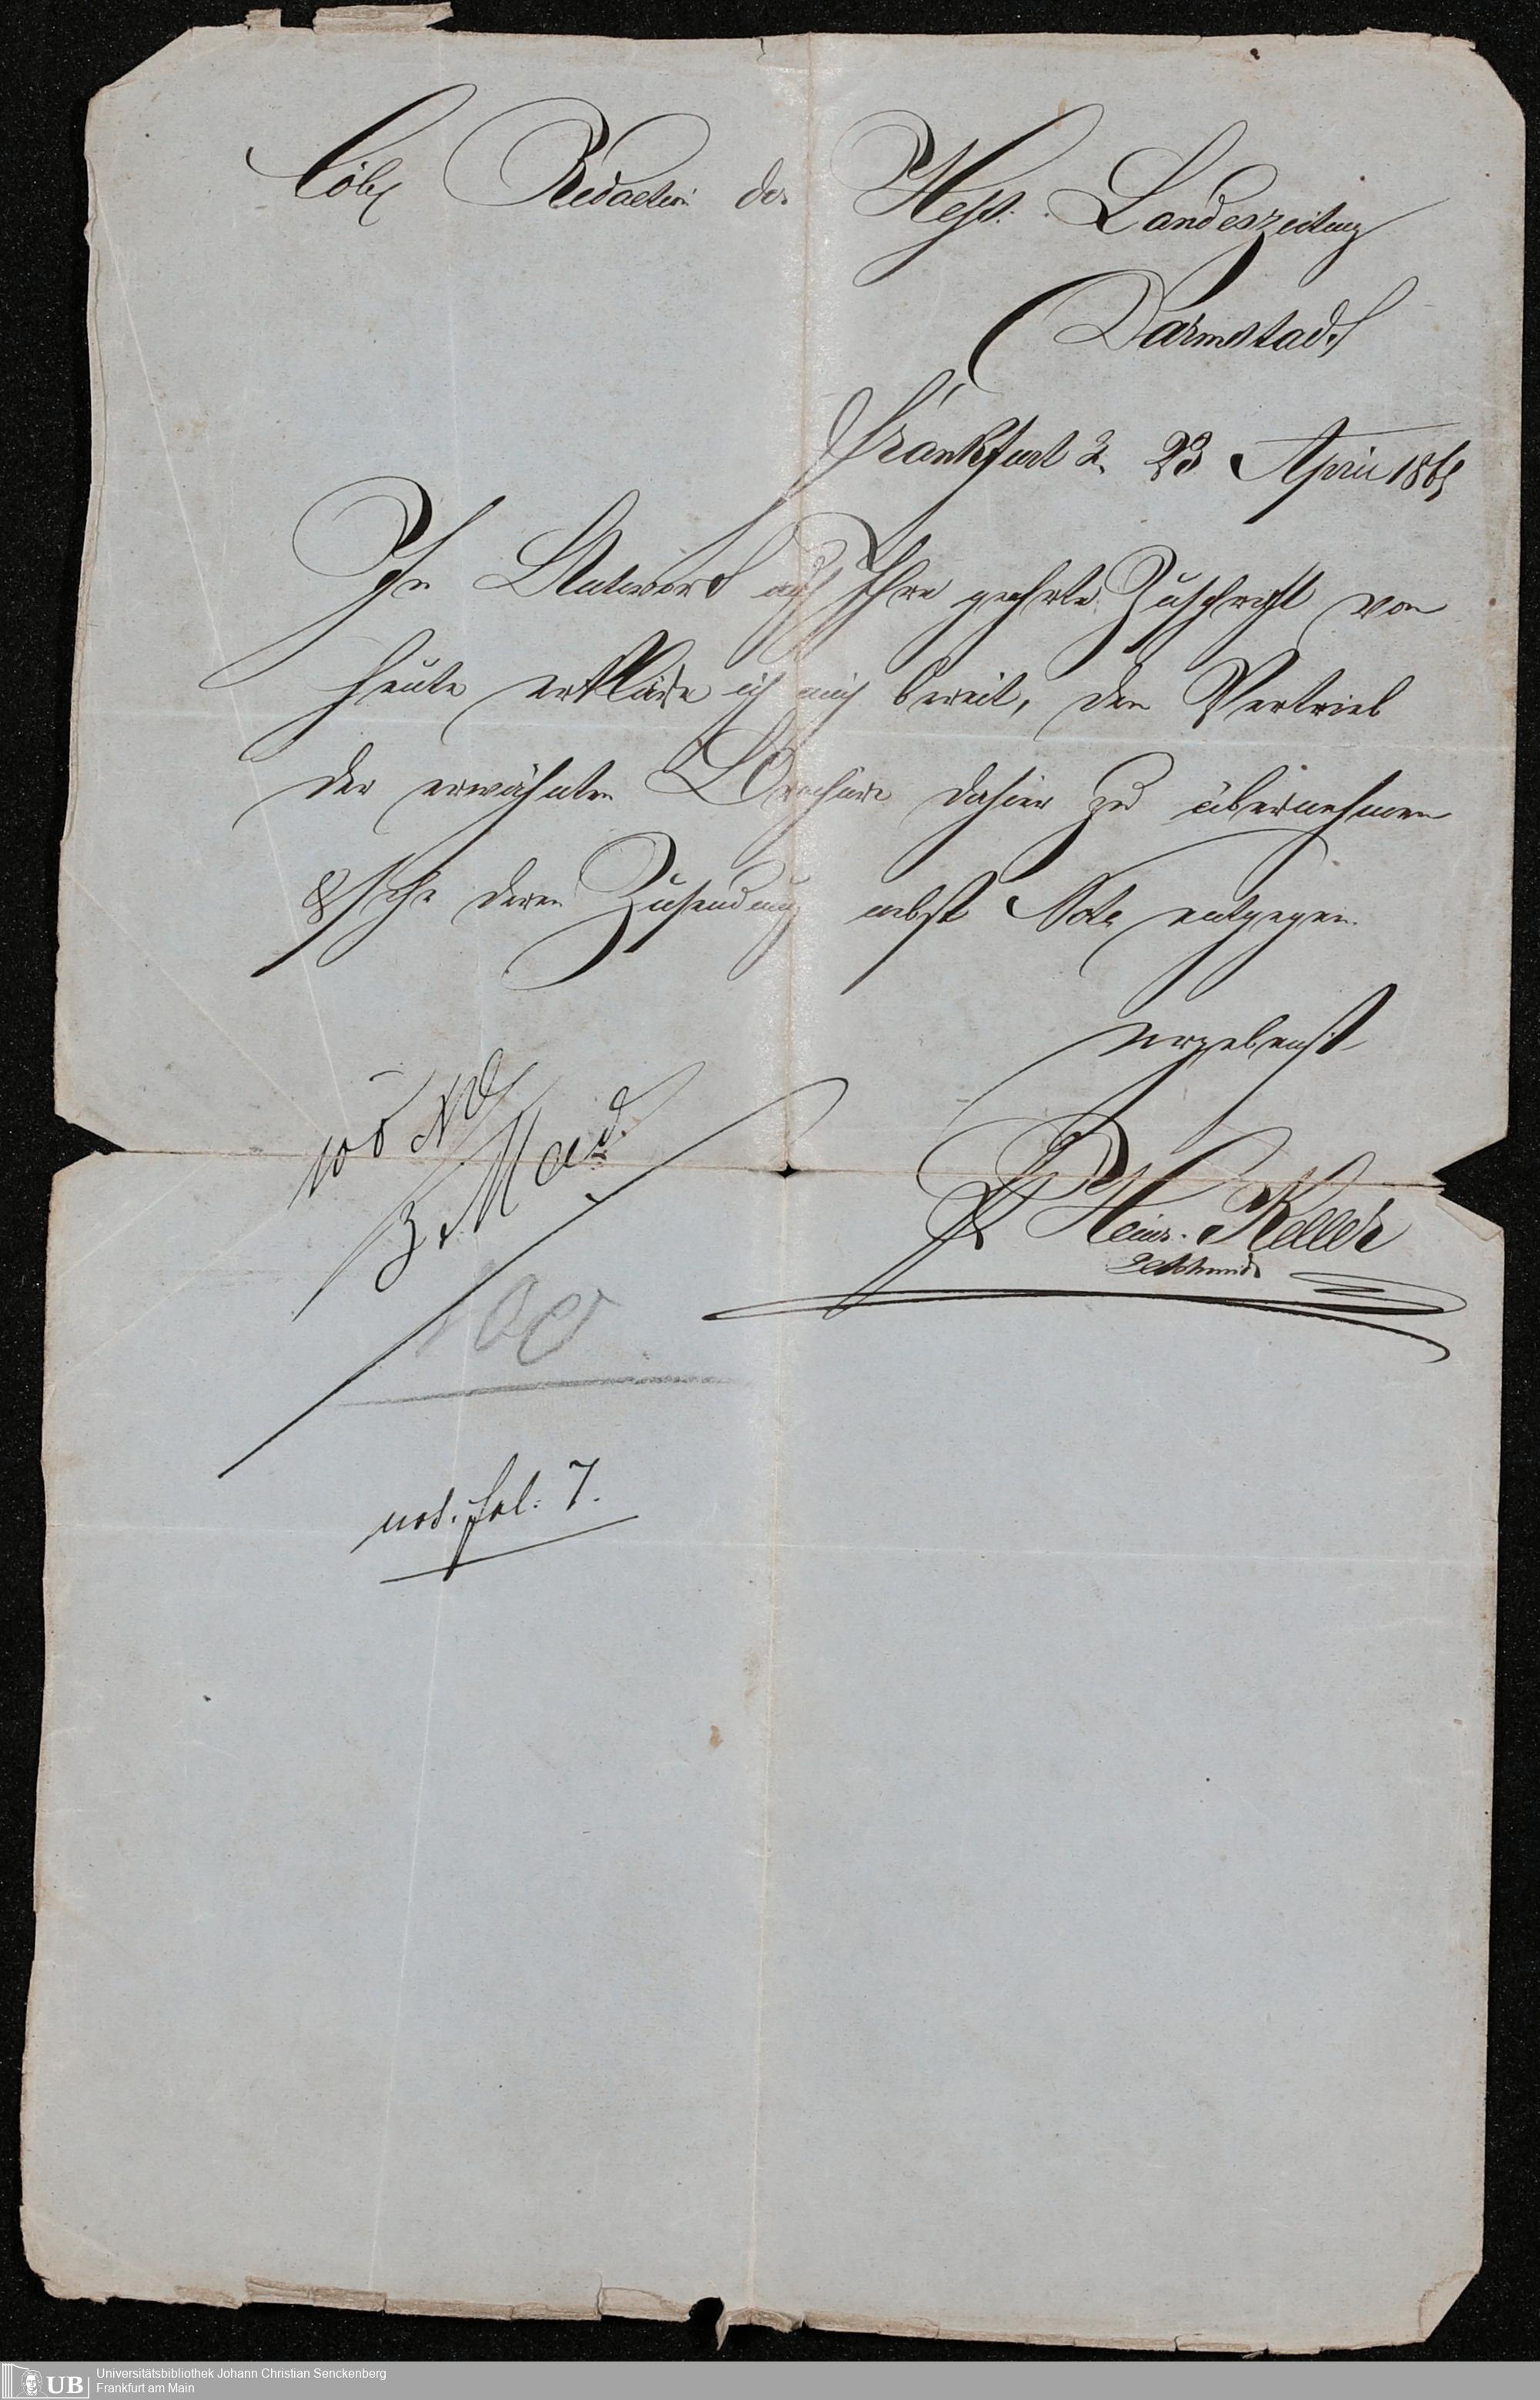 Löbl. Redaction der Hess. Landeszeitung
Darmstadt
Frankfurt d. 23 April 1865
In Antwort auf Ihre geehrte Zuschrift von
heute erkläre ich mich bereit, den Vertrieb
der erwähnten Brochüre dahier zu übernehmen
& sehe deren Zusendung nebst Nota entgegen.
ergebenst
Heinr. Keller
3 Mai
100
not. fol: 7.
UB Universitätsbibliothek Johann Christian Senckenberg
Frankfurt am Main